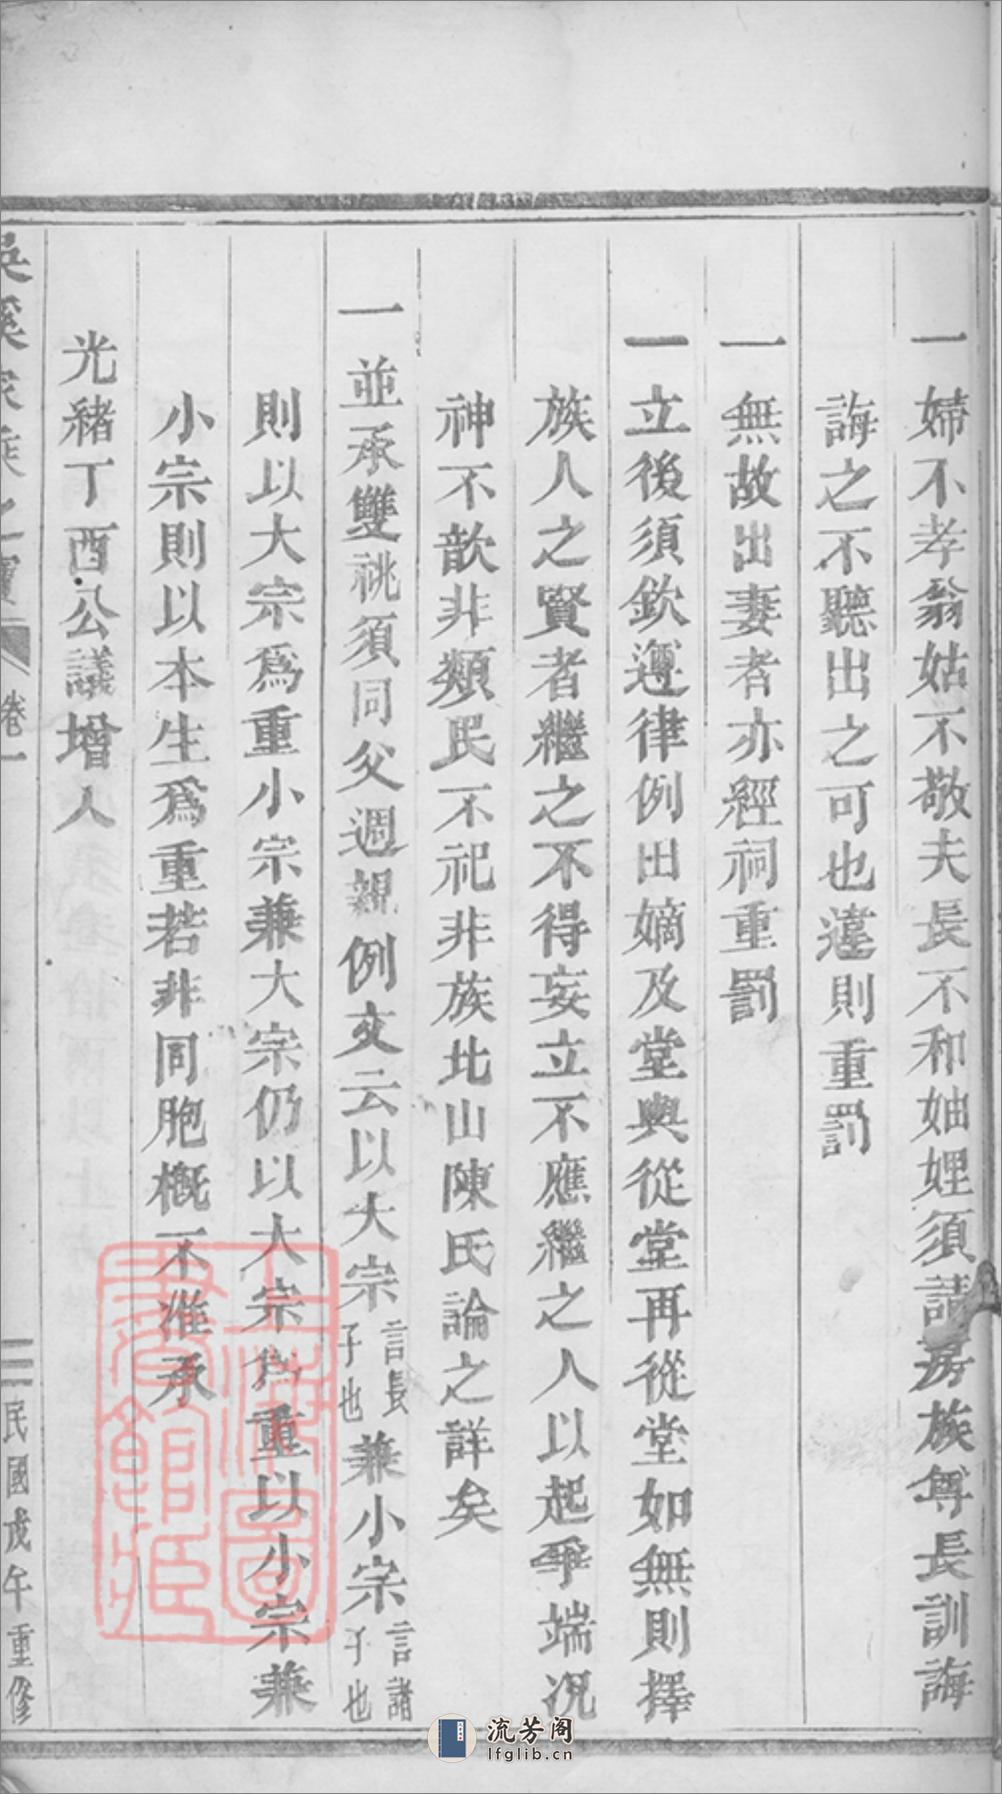 一婦不孝翁姑不敬夫長不和妯娌須請房族尊長訓誨
誨之不聽出之可也違則重罰
一無故出妻者亦經祠重罰
一立後須欽遵律例由嫡及堂與從堂再從堂如無則擇
族人之賢者繼之不得妄立不應繼之人以起爭端况
神不歆非類民不祀非族北山陳氏論之詳矣
一並承雙祧須同父週親例文云以大宗言長子也兼小宗言諸子也
則以大宗爲重小宗兼大宗仍以大宗爲重以小宗兼
小宗則以本生爲重若非同胞概不準承
光緒丁酉公議增入
吳溪家乘之寶
卷一
三 民國戊午重修
上海圖書館藏
流芳阁
lfglib.cn